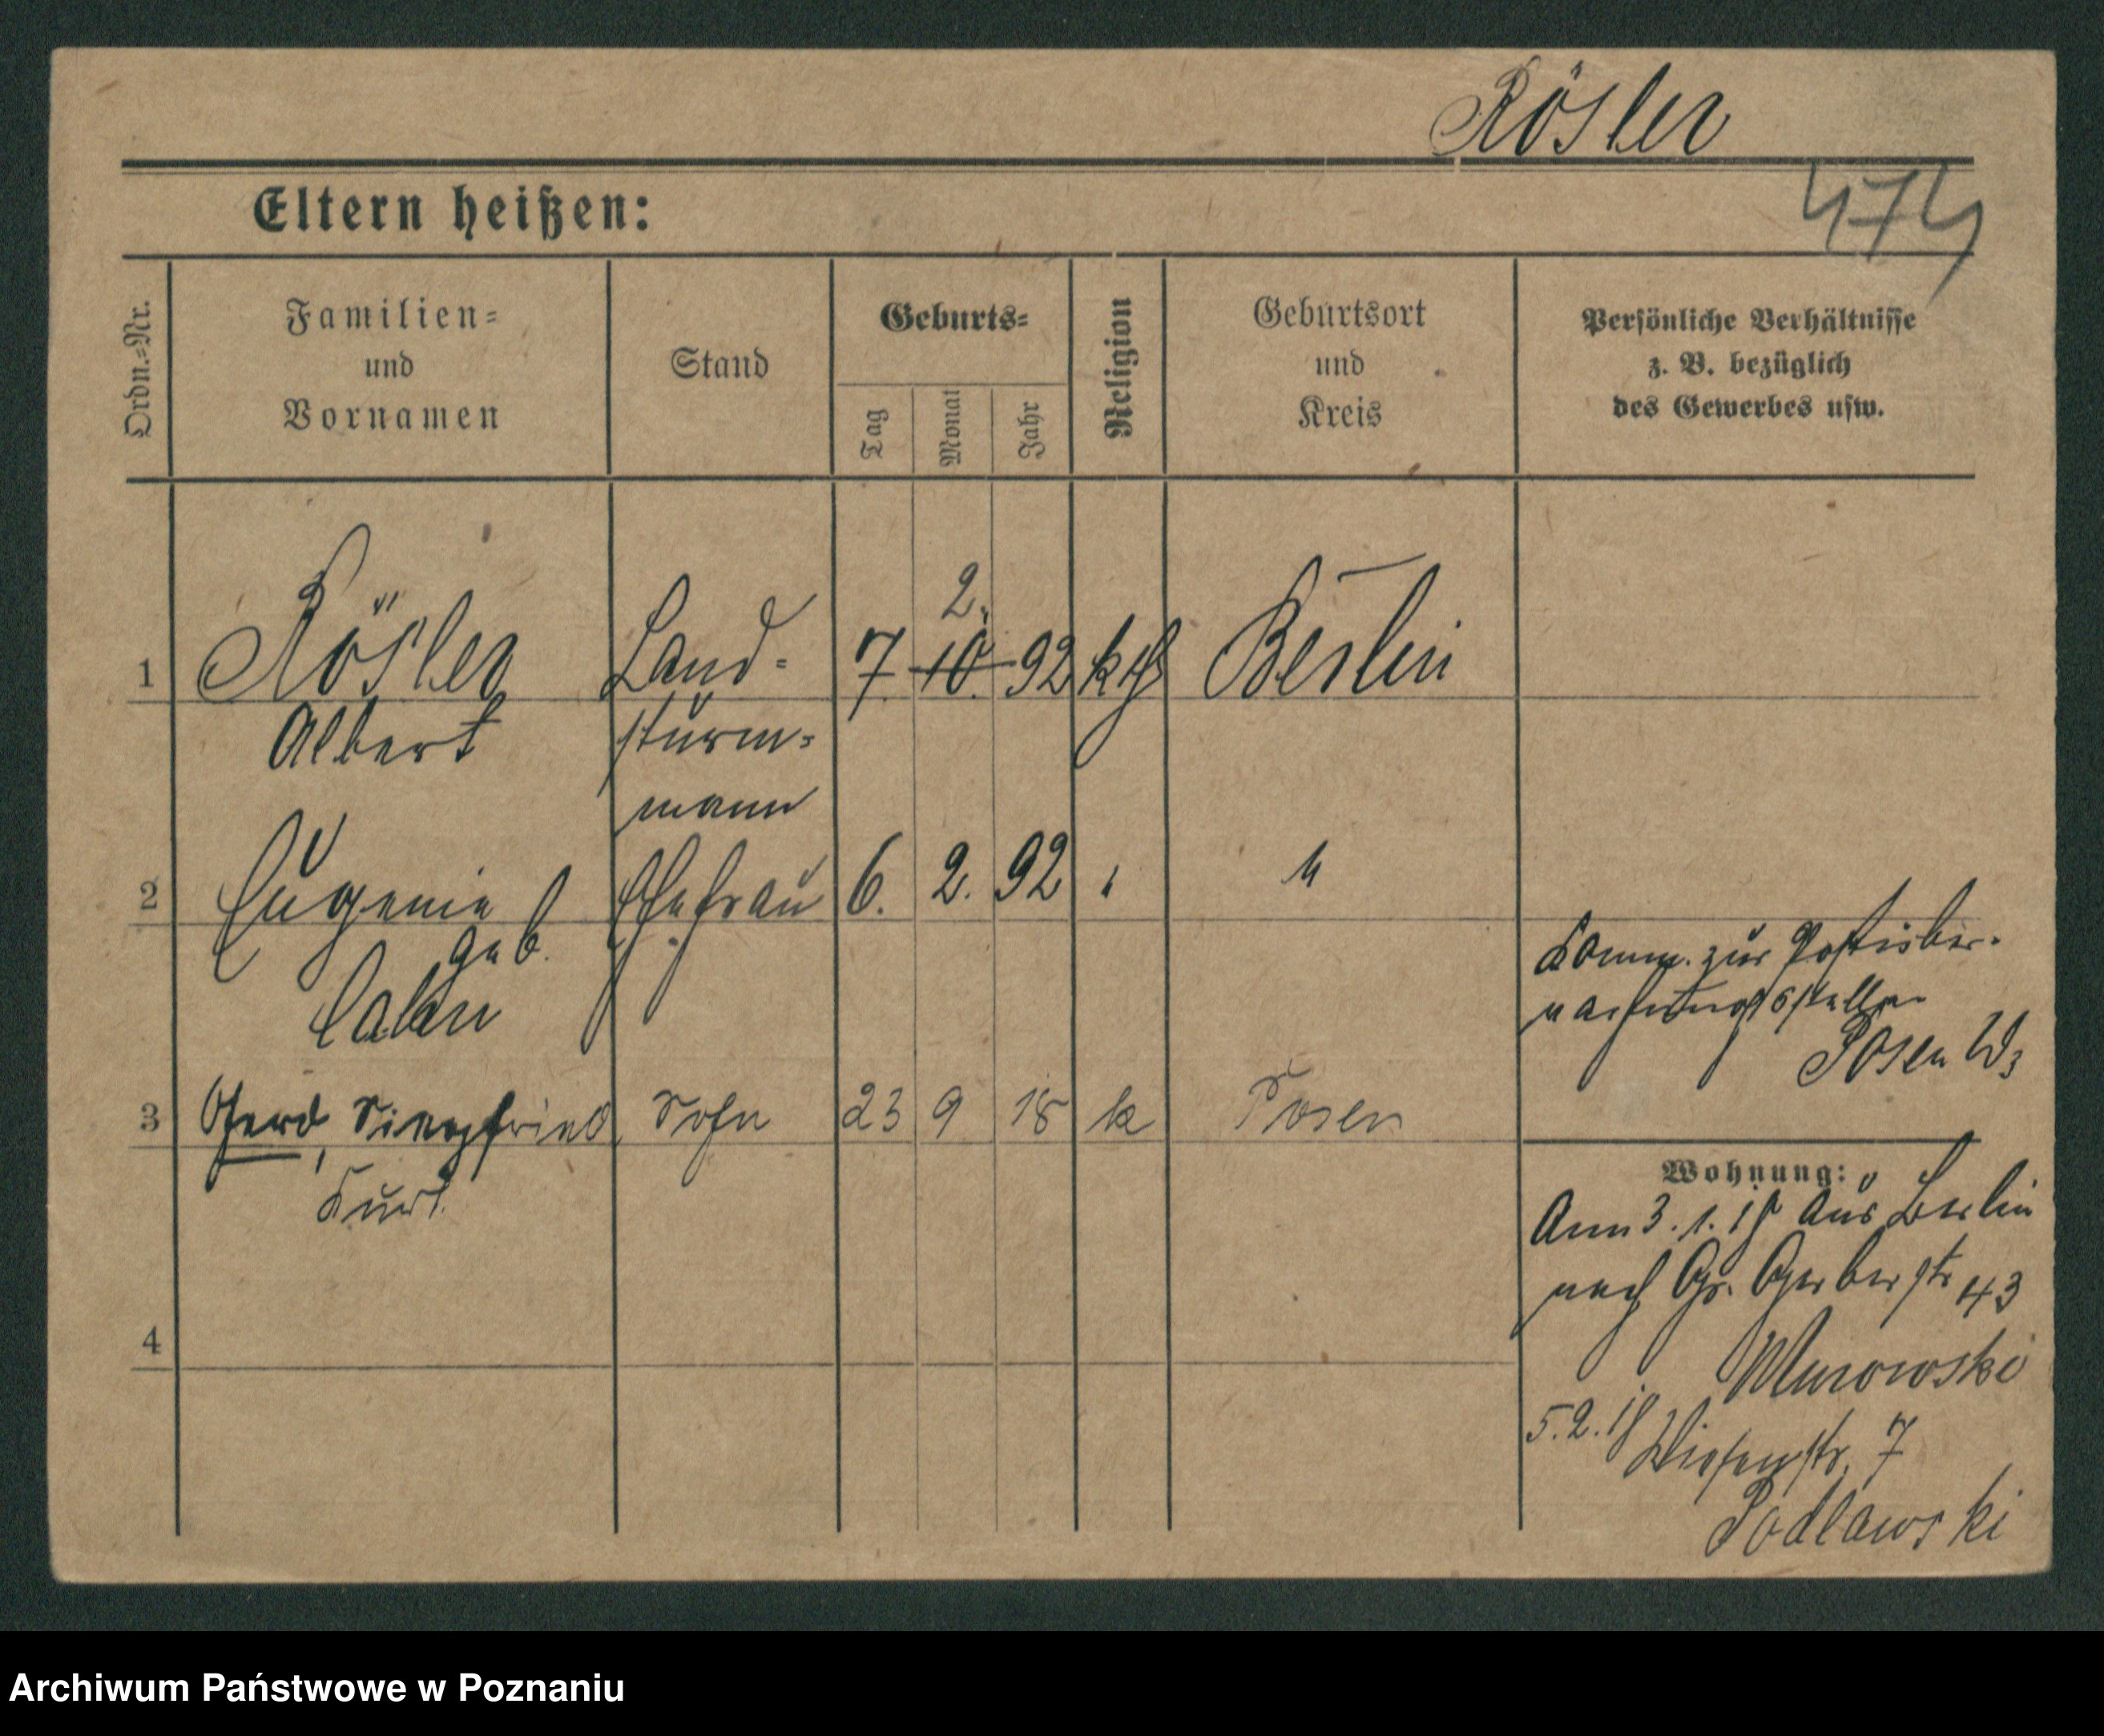 Rösler
474
Eltern heißen:
Ordn.-Nr.
Familien-
und
Vornamen
Stand
Geburts-
Tag
Monat
Jahr
Religion
Geburtsort
und
Kreis
Persönliche Verhältnisse
z. B. bezüglich
des Gewerbes usw.
1 Rösler Land- 7. 10. 92 kth Berlin
2.
Albert sturm-
mann
2 Eugenie Ehefrau 6. 2. 92 " "
geb.
Komm. zur Postüber-
wachungsstelle
Posen W3
3 Gerd, Siegfried Sohn 23 9 18 k Posen
Kurt
Wohnung:
Anm 3.1.18 aus Berlin
nach Gr. Gerberstr 43
Murowski
5.2.18 Wiesenstr. 7
Podlawski
4
Archiwum Państwowe w Poznaniu